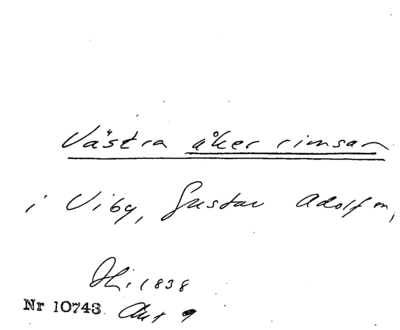 Västra åker rimsan
i Viby, Gustav Adolf m,
1838
Nr 10743